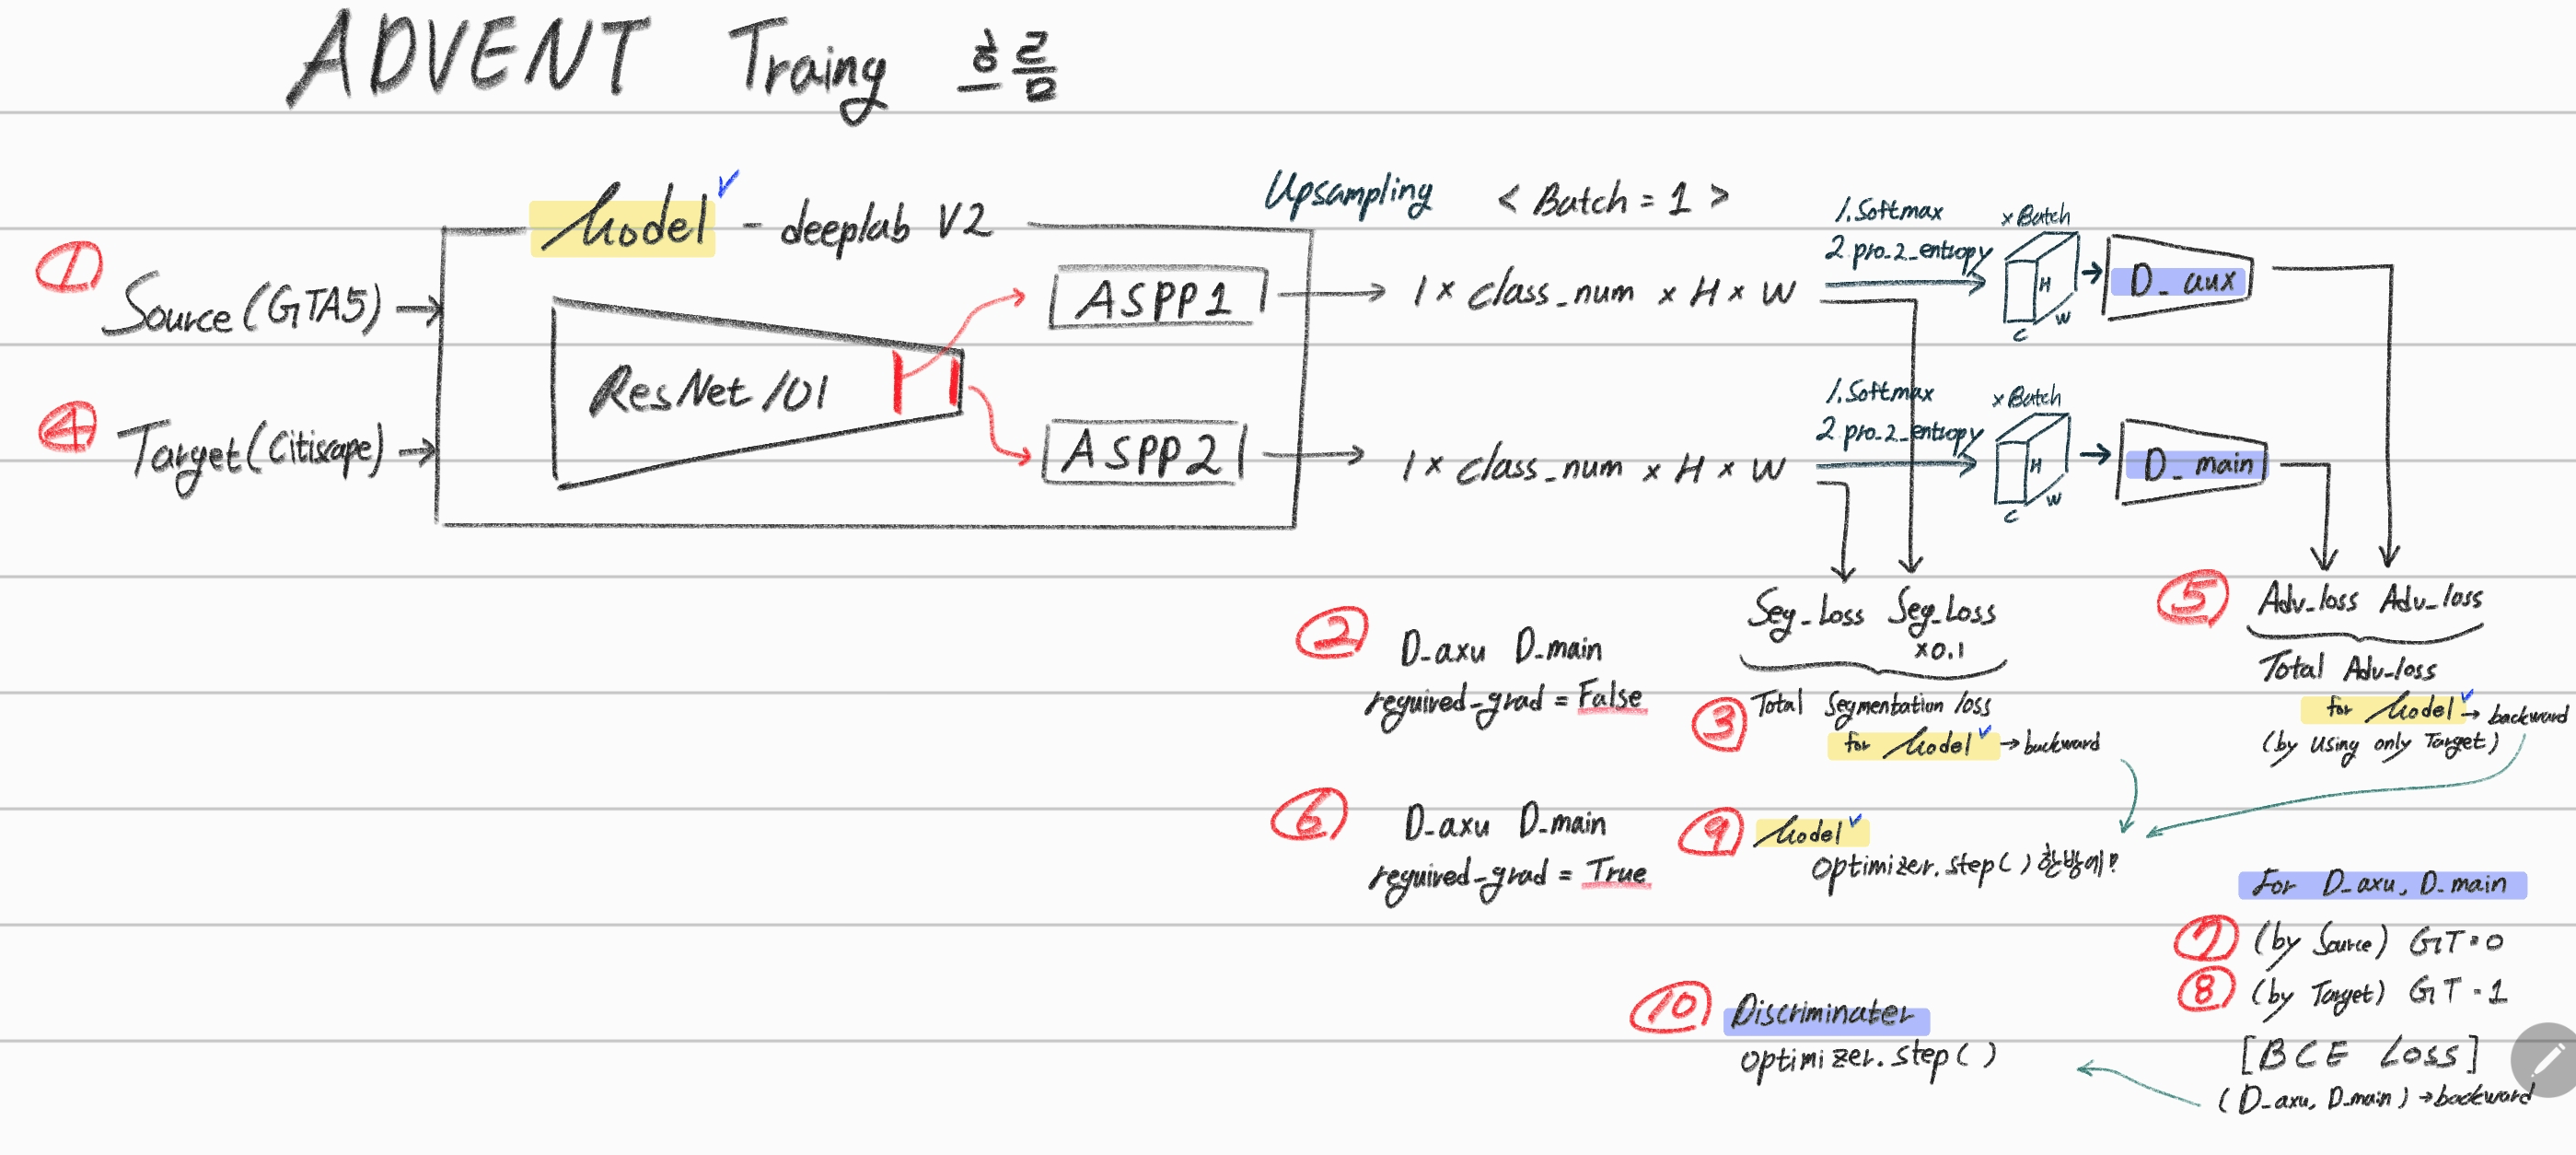 ADVENT Traing 흐름
Model - deeplab V2
Upsampling
< Batch = 1 >
① Source (GTA5)
④ Target (Citiscape)
ResNet 101
ASPP1
ASPP2
1 × class_num × H × W
1. Softmax
2. pro_2_entropy
× Batch
H
W
C
D_aux
1 × class_num × H × W
1. Softmax
2. pro_2_entropy
× Batch
H
W
C
D_main
② D_axu D_main
required_grad = False
Seg_Loss Seg_Loss
×0.1
③ Total Segmentation loss
for Model → backward
⑤ Adv_loss Adv_loss
Total Adv_loss
for Model → backward
(by using only Target)
⑥ D_axu D_main
required_grad = True
⑨ Model
optimizer.step() 한방에?
For D_axu, D_main
⑦ (by Source) GT=0
⑧ (by Target) GT=1
[BCE Loss]
(D_axu, D_main) → backward
⑩ Discriminater
optimizer.step()